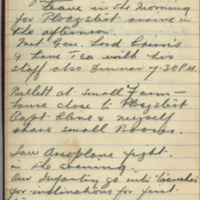 Leave in the Morning
for Ploegstert arrive in
the afternoon.
Met Gen. Lord
& have Tea with his
staff also Dinner 7.30 P.M.
Billett at Small Farm—
House close to Ploegstert
Capt. & Myself
share small Room.
Saw Aeroplane fight
in the Evening.
Our Infantry go into Trenches
for instructions for first